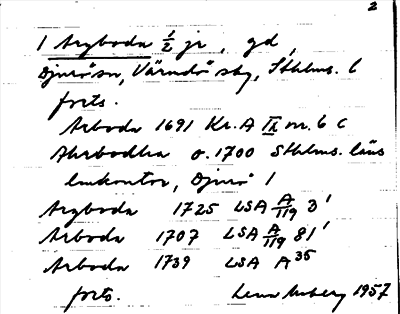 2
1 Argboda 1/2 jr, gd,
Djurö sn, Värmdö skg, Sthlms. l
forts.
Arboda 1691 Kr. A IX nr. 6 c
Ahrbodha o. 1700 Sthlms. läns
lmkontor, Djurö 1
Argboda 1725 LSA A/119 3'
Arboda 1707 LSA A/119 81'
Arboda 1739 LSA A 35
forts. 1957